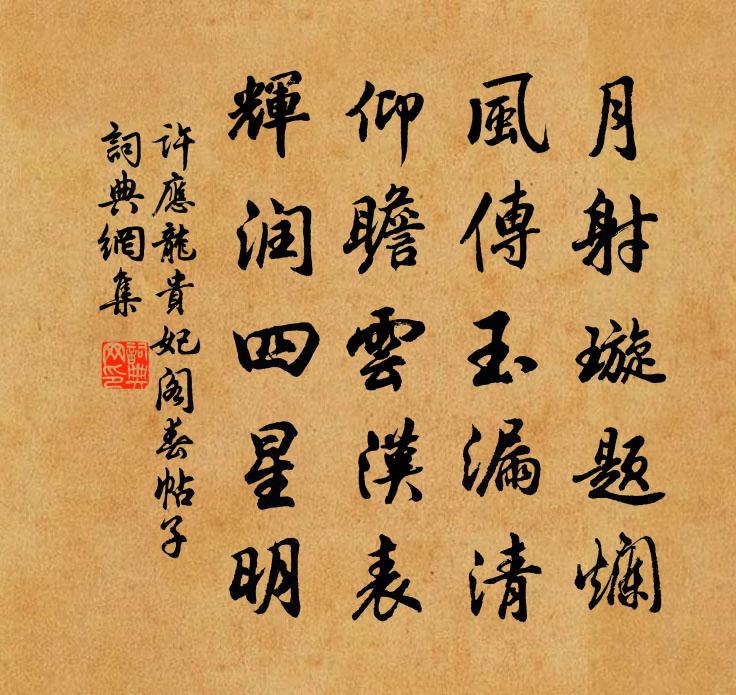 月射璇题爛
風傳玉漏清
仰瞻雲漢表
輝润四星明
許應龍貴妃阁春帖子
詞典網集
詞典网印